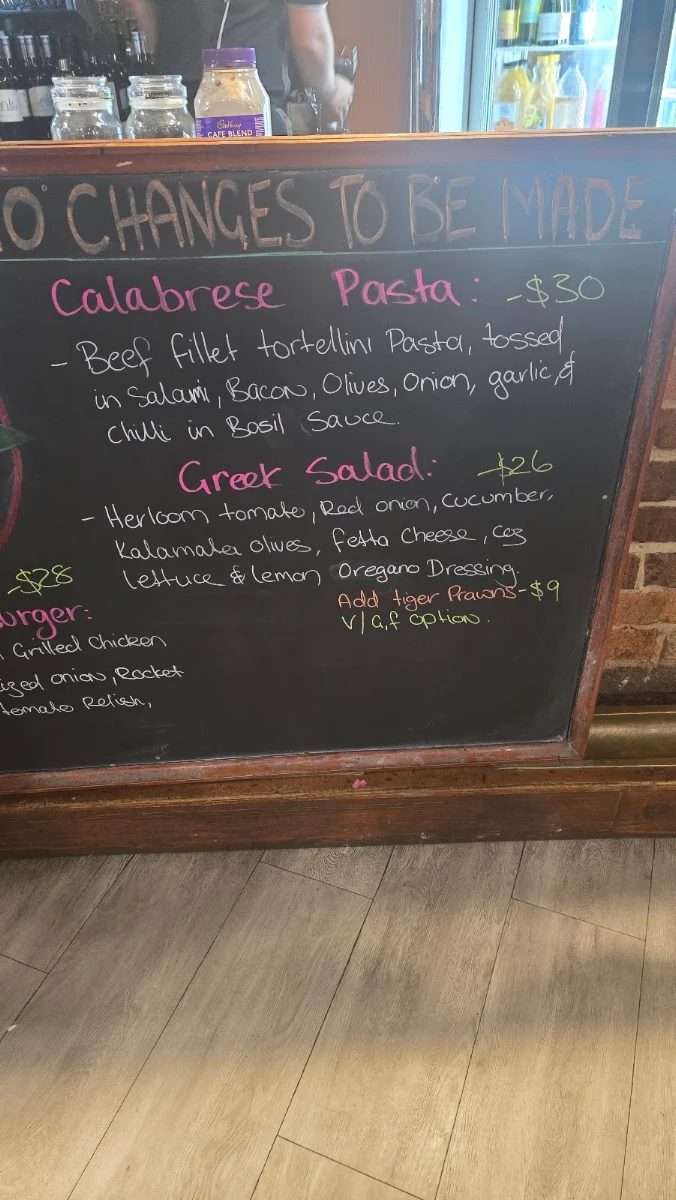 Cadbury
CAFE BLEND
O CHANGES TO BE MADE
Calabrese Pasta: -$30
- Beef fillet tortellini Pasta, tossed
in Salami, Bacon, Olives, Onion, garlic, &
chilli in Basil Sauce.
Greek Salad: -$26
- Herloom tomato, Red onion, cucumber,
Kalamata olives, fetta Cheese, coz
lettuce & lemon Oregano Dressing.
Add tiger Prawns -$9
V/G,f option.
-$28
urger:
Grilled Chicken
ized onion, Rocket
tomato Relish,